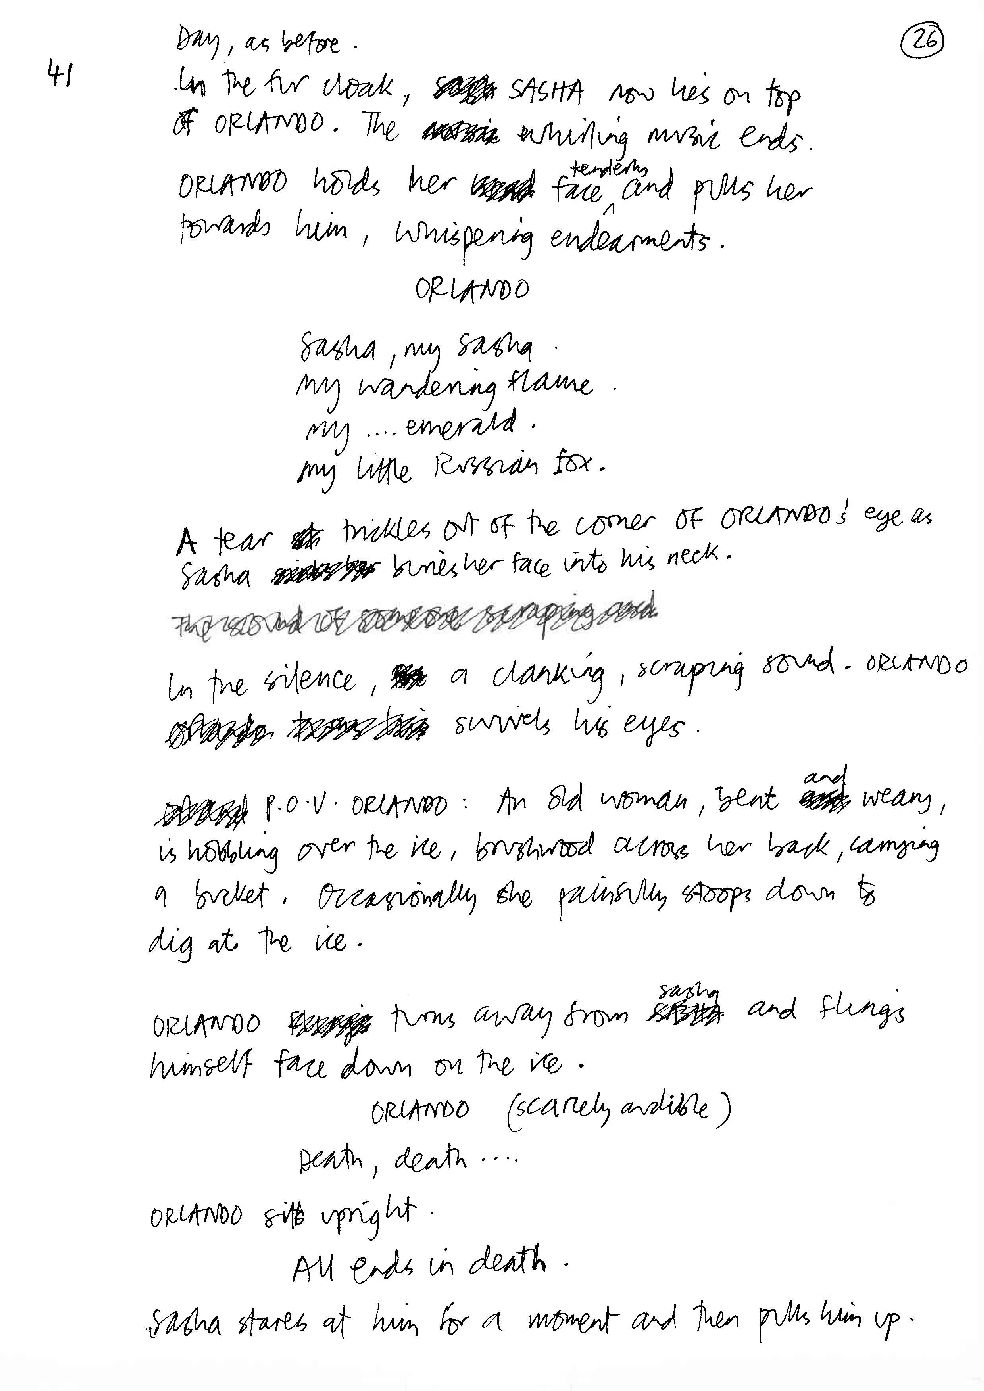 26
Day, as before.
41
In the fur cloak, SASHA now lies on top
of ORLANDO. The whirling music ends.
tenderly
ORLANDO holds her face ^ and pulls her
towards him, whispering endearments.
ORLANDO
Sasha, my Sasha.
My wandering flame.
My .... emerald.
My little Russian fox.
A tear trickles out of the corner of ORLANDO's eye as
Sasha buries her face into his neck.
The sound of someone scraping and
In the silence, a clanking, scraping sound. ORLANDO
swivels his eyes.
and
P.O.V. ORLANDO: An old woman, bent weary,
is hobbling over the ice, brushwood across her back, carrying
a bucket. Occasionally she painfully stoops down to
dig at the ice.
Sasha
ORLANDO turns away from and flings
himself face down on the ice.
ORLANDO (scarcely audible)
Death, death ....
ORLANDO sits upright.
All ends in death.
Sasha stares at him for a moment and then pulls him up.